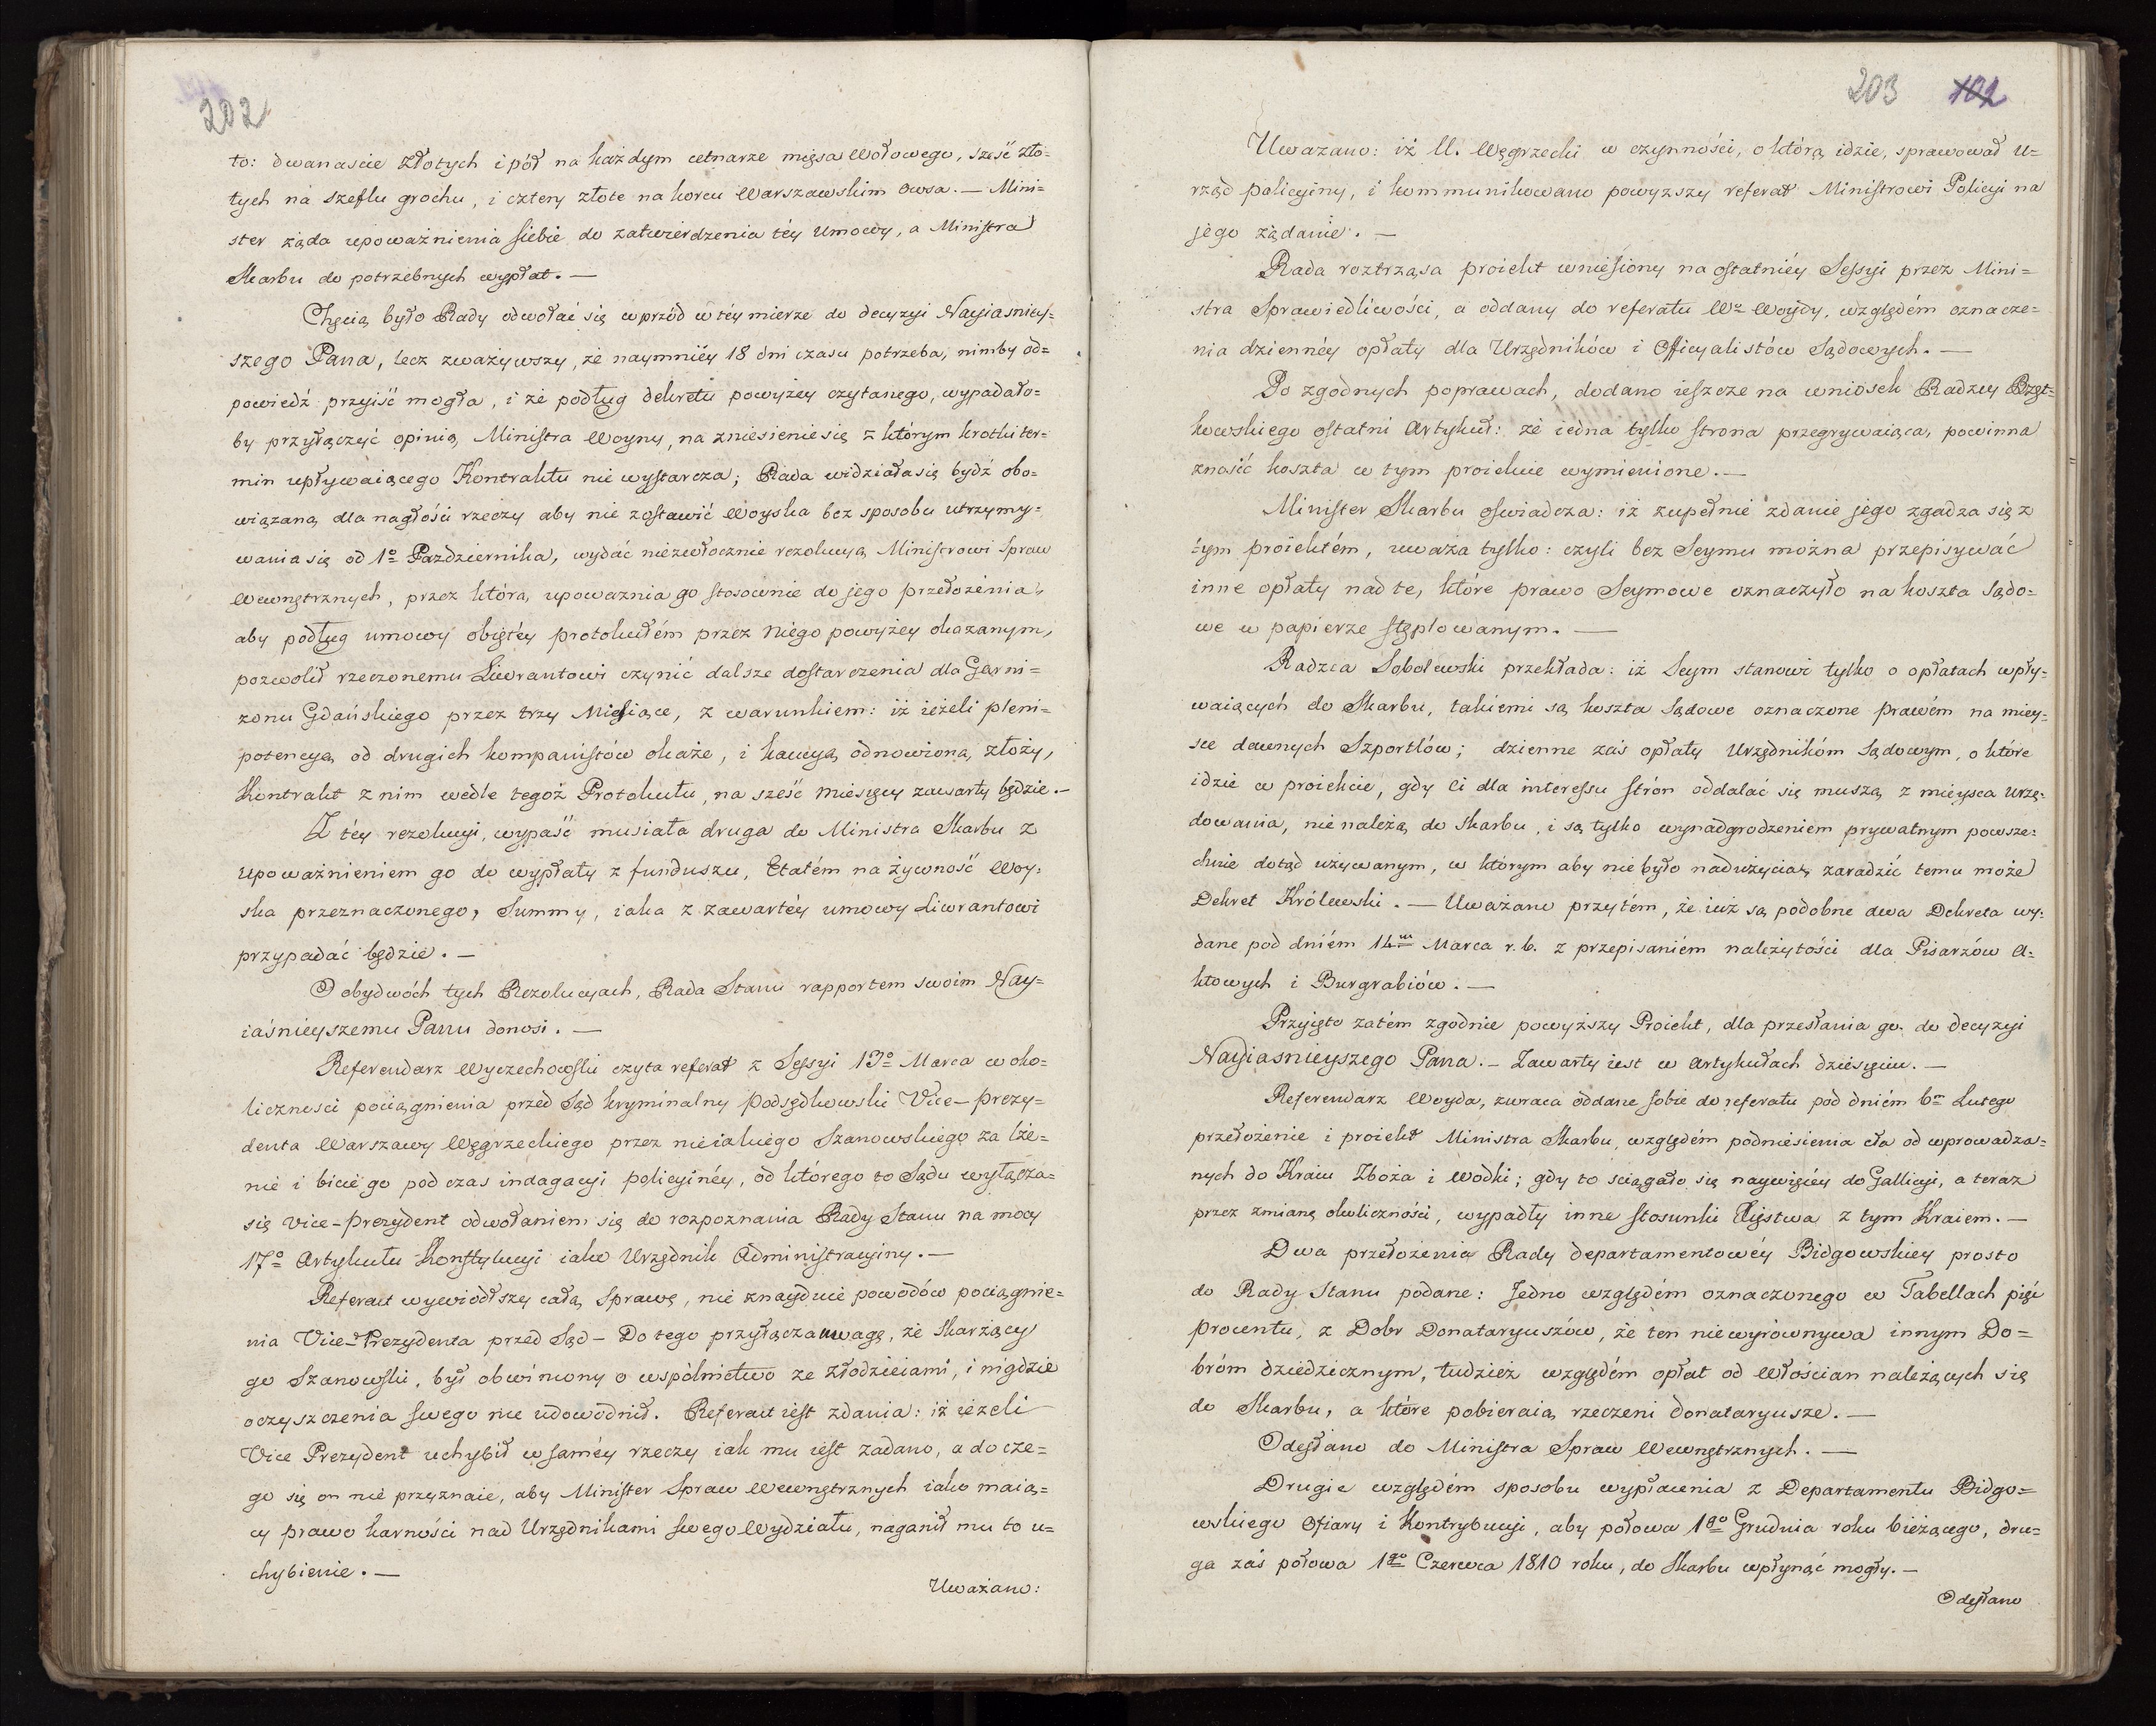 202
to: dwanascie Złotych i pół na każdym cetnarze mięsa Wołowego, sześć zło=
tych na szeflu grochu, i cztery złote na korcu Warszawskim Owsa. — Mini=
ster żąda upoważnienia siebie do zatwierdzenia téy Umowy, a Ministra
Skarbu do potrzebnych wypłat. —
Chęcią było Rady odwołać się wprzód w téy mierze do decyzyi Nayiasniey=
szego Pana, lecz zważywszy, że naymniéy 18 dni czasu potrzeba, nimby od=
powiedź przyiść mogła, i że podług dekretu powyżey czytanego, wypadało=
by przyłączyć opinią Ministra Woyny, na zniesienie się z którym krotki ter=
min upływaiącego Kontraktu nie wystarcza; Rada widziała się bydź obo=
wiązaną dla nagłości rzeczy aby nie zostawić Woyska bez sposobu utrzymy=
wania się od 1o Pazdziernika, wydać niezwłocznie rezolucyą Ministrowi Spraw
Wewnętrznych, przez którą, upoważnia go stosownie do jego przełożenia,
aby podług umowy obiętéy protokułém przez Niego powyżey okazanym,
pozwolił rzeczonemu Liwrantowi czynić dalsze dostarczenia dla Garni=
zonu Gdańskiego przez trzy Miesiące, z warunkiem: iż ieżeli pleni=
potencyą od drugich kompanistów okaże, i kaucyą odnowioną złoży,
Kontrakt z nim wedle tegoż Protokułu, na sześć Miesięcy zawarty będzie. —
Z téy rezolucyi, wypaść musiała druga do Ministra Skarbu z
upoważnieniem go do wypłaty z funduszu, Etatém na żywność Woy=
ska przeznaczonego, Summy, iaka z zawartéy umowy Liwrantowi
przypadać będzie. —
O obydwóch tych Rezolucyach, Rada Stanu rapportem swoim Nay=
iaśnieyszemu Panu donosi. —
Referendarz Wyczechowski czyta referat z Sessyi 13o Marca w oko=
liczności pociągnienia przed Sąd kryminalny Podsędkowski Vice-Prezy=
denta Warszawy Węgrzeckiego przez nieiakiego Szanowskiego za lże=
nie i bicie go podczas indagacyi policyinéy, od którego to Sądu wyłącza=
się Vice-Prezydent odwołaniem się do rozpoznania Rady Stanu na mocy
17o Artykułu Konstytucyi iako Urzędnik Administracyiny. —
Referent wywiódłszy całą Sprawę, nie znayduie powodów pociągnie=
nia Vice-Prezydenta przed Sąd — Do tego przyłącza uwagę, że Skarżący
go Szanowski, był obwiniony o wspólnictwo ze Złodzieiami, i nigdzie
oczyszczenia swego nie udowodnił. Referent iest zdania: iż ieżeli
Vice Prezydent uchybił w saméy rzeczy iak mu iest zadano, a do cze=
go się on nie przyznaie, aby Minister Spraw Wewnętrznych iako maią=
cy prawo karności nad Urzędnikami swego Wydziału, naganił mu to u=
chybienie. —
Uważano:
203 102
Uważano: iż U. Węgrzecki w czynności, o którą idzie, sprawował u=
rząd policyiny, i kommunikowano powyższy referat Ministrowi Policyi na
jego żądanie. —
Rada roztrząsa proiekt wniesiony na ostatniéy Sessyi przez Mini=
stra Sprawiedliwości, a oddany do referatu Wo Woydy, względém oznacze=
nia dziennéy opłaty dla Urzędników i Officyalistów Sądowych. —
Po zgodnych poprawach, dodano ieszcze na wniosek Radzcy Bzęt=
kowskiego ostatni Artykuł: że iedna tylko strona przegrywaiąca, powinna
znosić koszta w tym proiekcie wymienione. —
Minister Skarbu oświadcza: iż zupełnie zdanie jego zgadza się z
tym proiektém, uważa tylko: czyli bez Seymu można przepisywać
inne opłaty nad te, które prawo Seymowe oznaczyło na koszta Sądo=
we w papierze stęplowanym. —
Radzca Sobolewski przekłada: iż Seym stanowi tylko o opłatach wpły=
waiących do Skarbu, takiemi są koszta Sądowe oznaczone prawém na miey=
sce dawnych Szportlów; dzienne zaś opłaty Urzędnikóm Sądowym, o które
idzie w proiekcie, gdy ci dla interessu strón oddalać się muszą z mieysca urzę=
dowania, nie należą do Skarbu, i są tylko wynadgrodzeniem prywatnym powsze=
chnie dotąd używanym, w którym aby nie było nadużycia, zaradzić temu może
Dekret Królewski. — Uważano przytém, że iuż są podobne dwa Dekreta wy=
dane pod dniém 14m Marca r. b. z przepisaniém należytości dla Pisarzów A=
ktowych i Burgrabiów. —
Przyięto zatém zgodnie powyższy Proiekt, dla przesłania go do decyzyi
Nayiasnieyszego Pana. — Zawarty iest w Artykułach dziesięciu. —
Referendarz Woyda, zwraca oddane sobie do referatu pod dniém 6m Lutego
przełożenie i proiekt Ministra Skarbu, względém podniesienia cła od wprowadza=
nych do Kraiu Zboża i Wodki; gdy to sciągało się naywięcéy do Gallicyi, a teraz
przez zmianę okoliczności, wypadły inne stosunki Xięstwa z tym Kraiem. —
Dwa przełożenia Rady Departamentowéy Bidgowskiey prosto
do Rady Stanu podane: Jedno względém oznaczonego w Tabellach pięć
procentu, z Dobr Donataryuszów, że ten niewyrównywa innym Do=
bróm dziedzicznym, tudzież względém opłat od Włościan należących się
do Skarbu, a które pobieraią rzeczeni donataryusze. —
Odesłano do Ministra Spraw Wewnętrznych. —
Drugie względém sposobu wypłacenia z Departamentu Bidgo=
wskiego Ofiary i Kontrybucyi, aby połowa 1go Grudnia roku bieżącego, dru=
ga zaś połowa 1go Czerwca 1810 roku, do Skarbu wpłynąć mogły. —
Odesłano